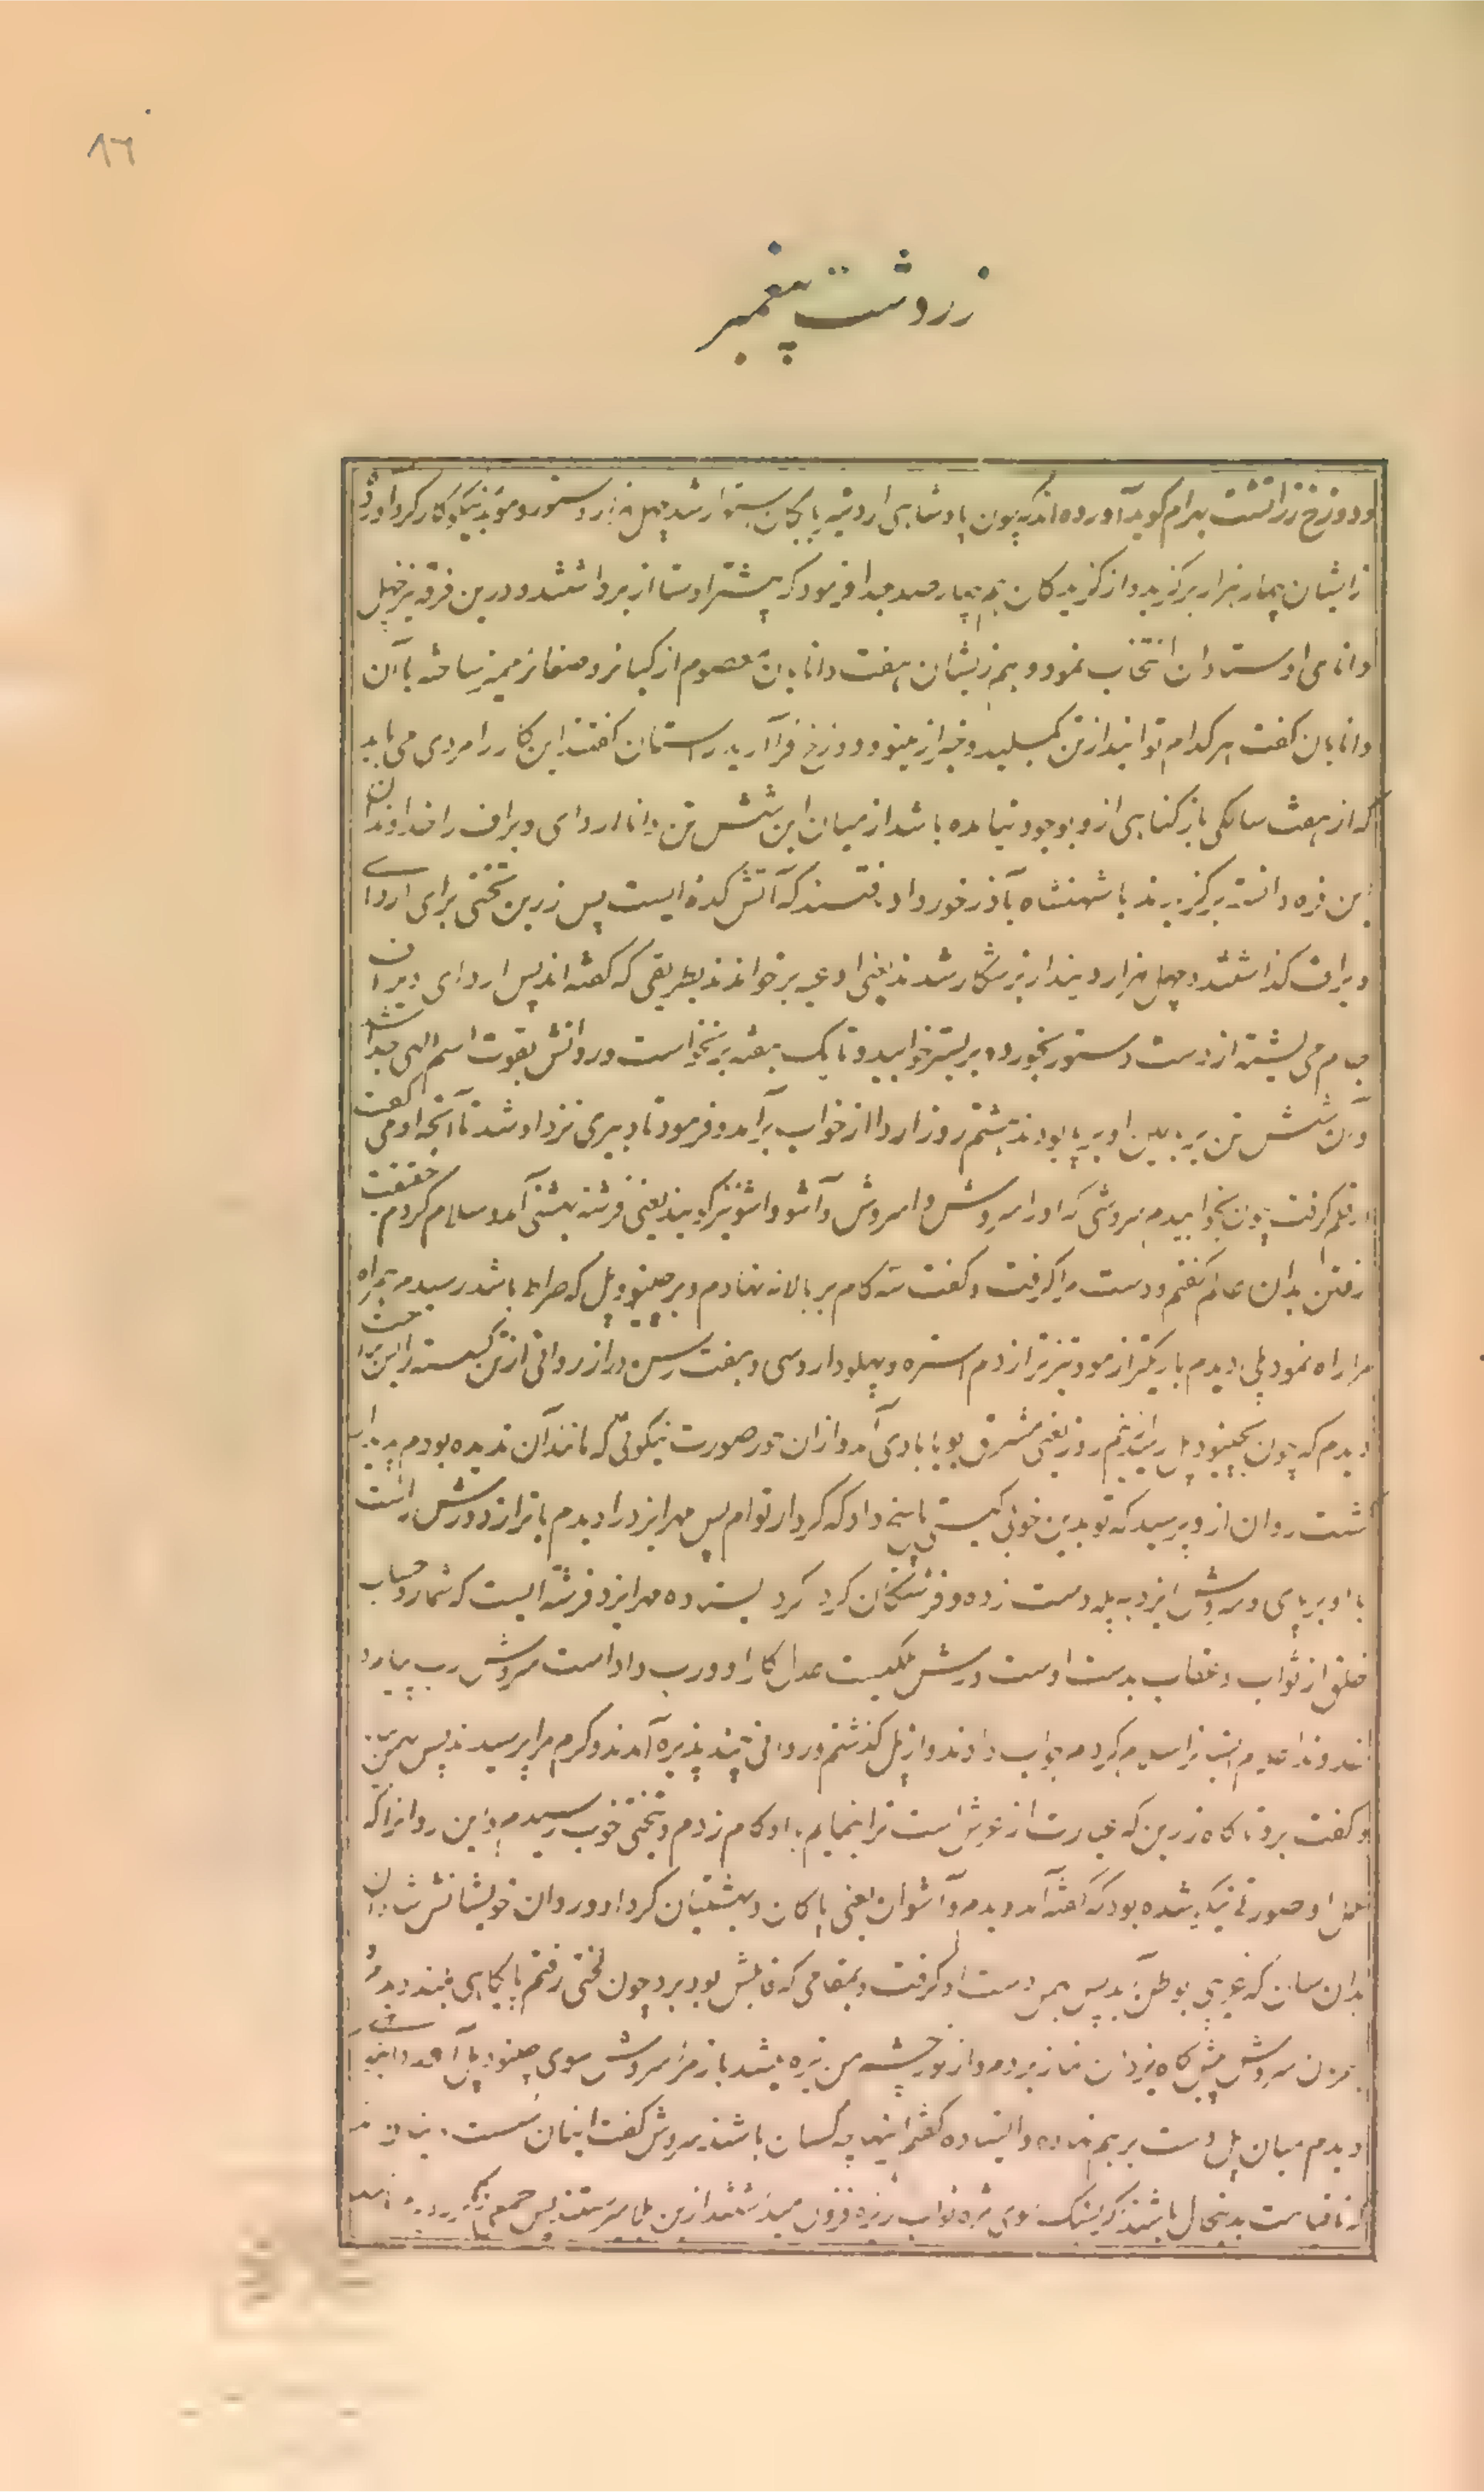 ٨٦
زردشت پیغمبر
و دوزخ زراتشت بهرام گوید آورده‌اند که چون پادشاهی اردشیر بابکان ستوار شد چهل هزار دستور و موبد نیکوکار گرد آورد
زایشان چهار هزار برگزید و از گزیدگان هم چهار صد جدا فرمود که بیشتر اوستا از بر داشتند و درین فرقه نیز چهل
دانای اوستادان انتخاب نمود و هم زیشان هفت دانایان معصوم از کبائر و صغائر ممیز ساخته با آن
دانایان گفت هر کدام توانید از تن گسلید و خبر از مینو و دوزخ فرا آرید راستان گفتند این کار را مردی می باید
که از هفت سالگی باز گناهی ازو بوجود نیامده باشد از میان این شش تن دانا اردای ویراف را خداوند
این فره دانسته برگزیدند با شهنشاه بآذر خورداد رفتند که آتش کده ایست پس زرین تختی برای اردای
ویراف گذاشتند و چهل هزار دیندار پرشکار شدند یعنی ادعیه بر خواندند بطریقی که گفته اند پس اردای ویراف
جام می یشته از دست دستور بخورد و بر بستر خوابید و تا یک هفته بر نخواست و روانش بقوت اسم الهی جدا شد
و آن شش تن بر بالین او بر پا بودند هشتم روز اردا از خواب بر آمد و فرمود تا دبیری نزد او شد تا آنچه او می گفت
قلم گرفت چون بخوابیدم سروشی که او را سروش و اسروش و آشو و اشو نیز گویند یعنی فرشته بهشتی آمد سلام کردم حقیقت
رفتن بدان عالم گفتم و دست مرا گرفت و گفت سه کام بر بالا نه نهادم و بر چینود پل که صراط باشد رسیدم همراه
مرا راه نمود پلی دیدم باریکتر از مو و تیزتر از دم استره و پهلودار و سی و هفت رسن دراز روانی از تن گسسته را
دیدم که چون بچینود پل رسید از نیم روز یعنی مشرق بویا بادی آمد و از ان حور صورت نیکوئی که مانند آن ندیده بودم پدیدار
گشت روان از و پرسید که تو بدین خوبی کیستی پاسخ داد که کردار توام پس مهر ایزد را دیدم با ترازو و رشن راست
با او بر پای و سروش ایزد به پله دست زده و فرشتگان گرد گرد ایستاده مهر ایزد فرشته ایست که شمار و حساب
خلق از ثواب و عقاب بدست اوست و رشن ملکیست عدل کار او و رب داد است سروش رب پیام
خداوند اعلام است را سلام کردم جواب دادند و از پل گذشتم و روانی چند پذیره آمدند و گرم مرا پرسیدند پس بهمن
و گفت برو تا گاه زرین که عبارت از عرش است ترا بنمایم با او کام زدم و بتختی خوب رسیدم و این روان را که
عمل او صورت نیکو شده بود که گفته آمد دیدم و آشوان یعنی پاکان و بهشتیان گرد او و روان خویشانش شادان
بدان سان که غریبی بوطن آید پس بهمن دست او گرفت و بمقامی که قابلش بود برد چون لختی رفتم پایگاهی بلند دیدم
بفرمان سروش پیش گاه یزدان نماز بردم و از نور چشم من تیره بشد باز مرا سروش سوی چینود پل آورد
دیدم میان پل دست بر هم نهاده و ایستاده گفتم اینها چه کسان باشند سروش گفت اینان سست دینان
تا قیامت بدین حال باشند